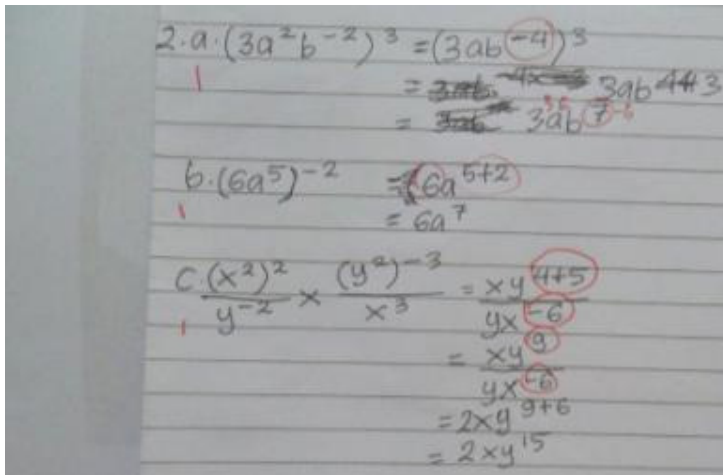 2.a. (3a²b⁻²)³ = (3ab⁻⁴)³
= 3ab⁴⁺³
= 3ab⁷
b. (6a⁵)⁻² = 6a⁵⁺²
= 6a⁷
c. (x²)²/y⁻² × (y²)⁻³/x³ = xy⁴⁺⁵/yx⁻⁶
= xy⁹/yx⁻⁶
= 2xy⁹⁺⁶
= 2xy¹⁵